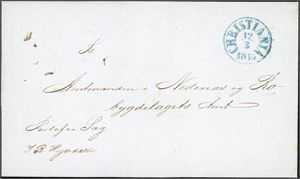 CHRISTIANIA
12
3
1845
Til
Amtmanden i Nedenæs og Ro-
bygdelagets Amt
Portofri Sag